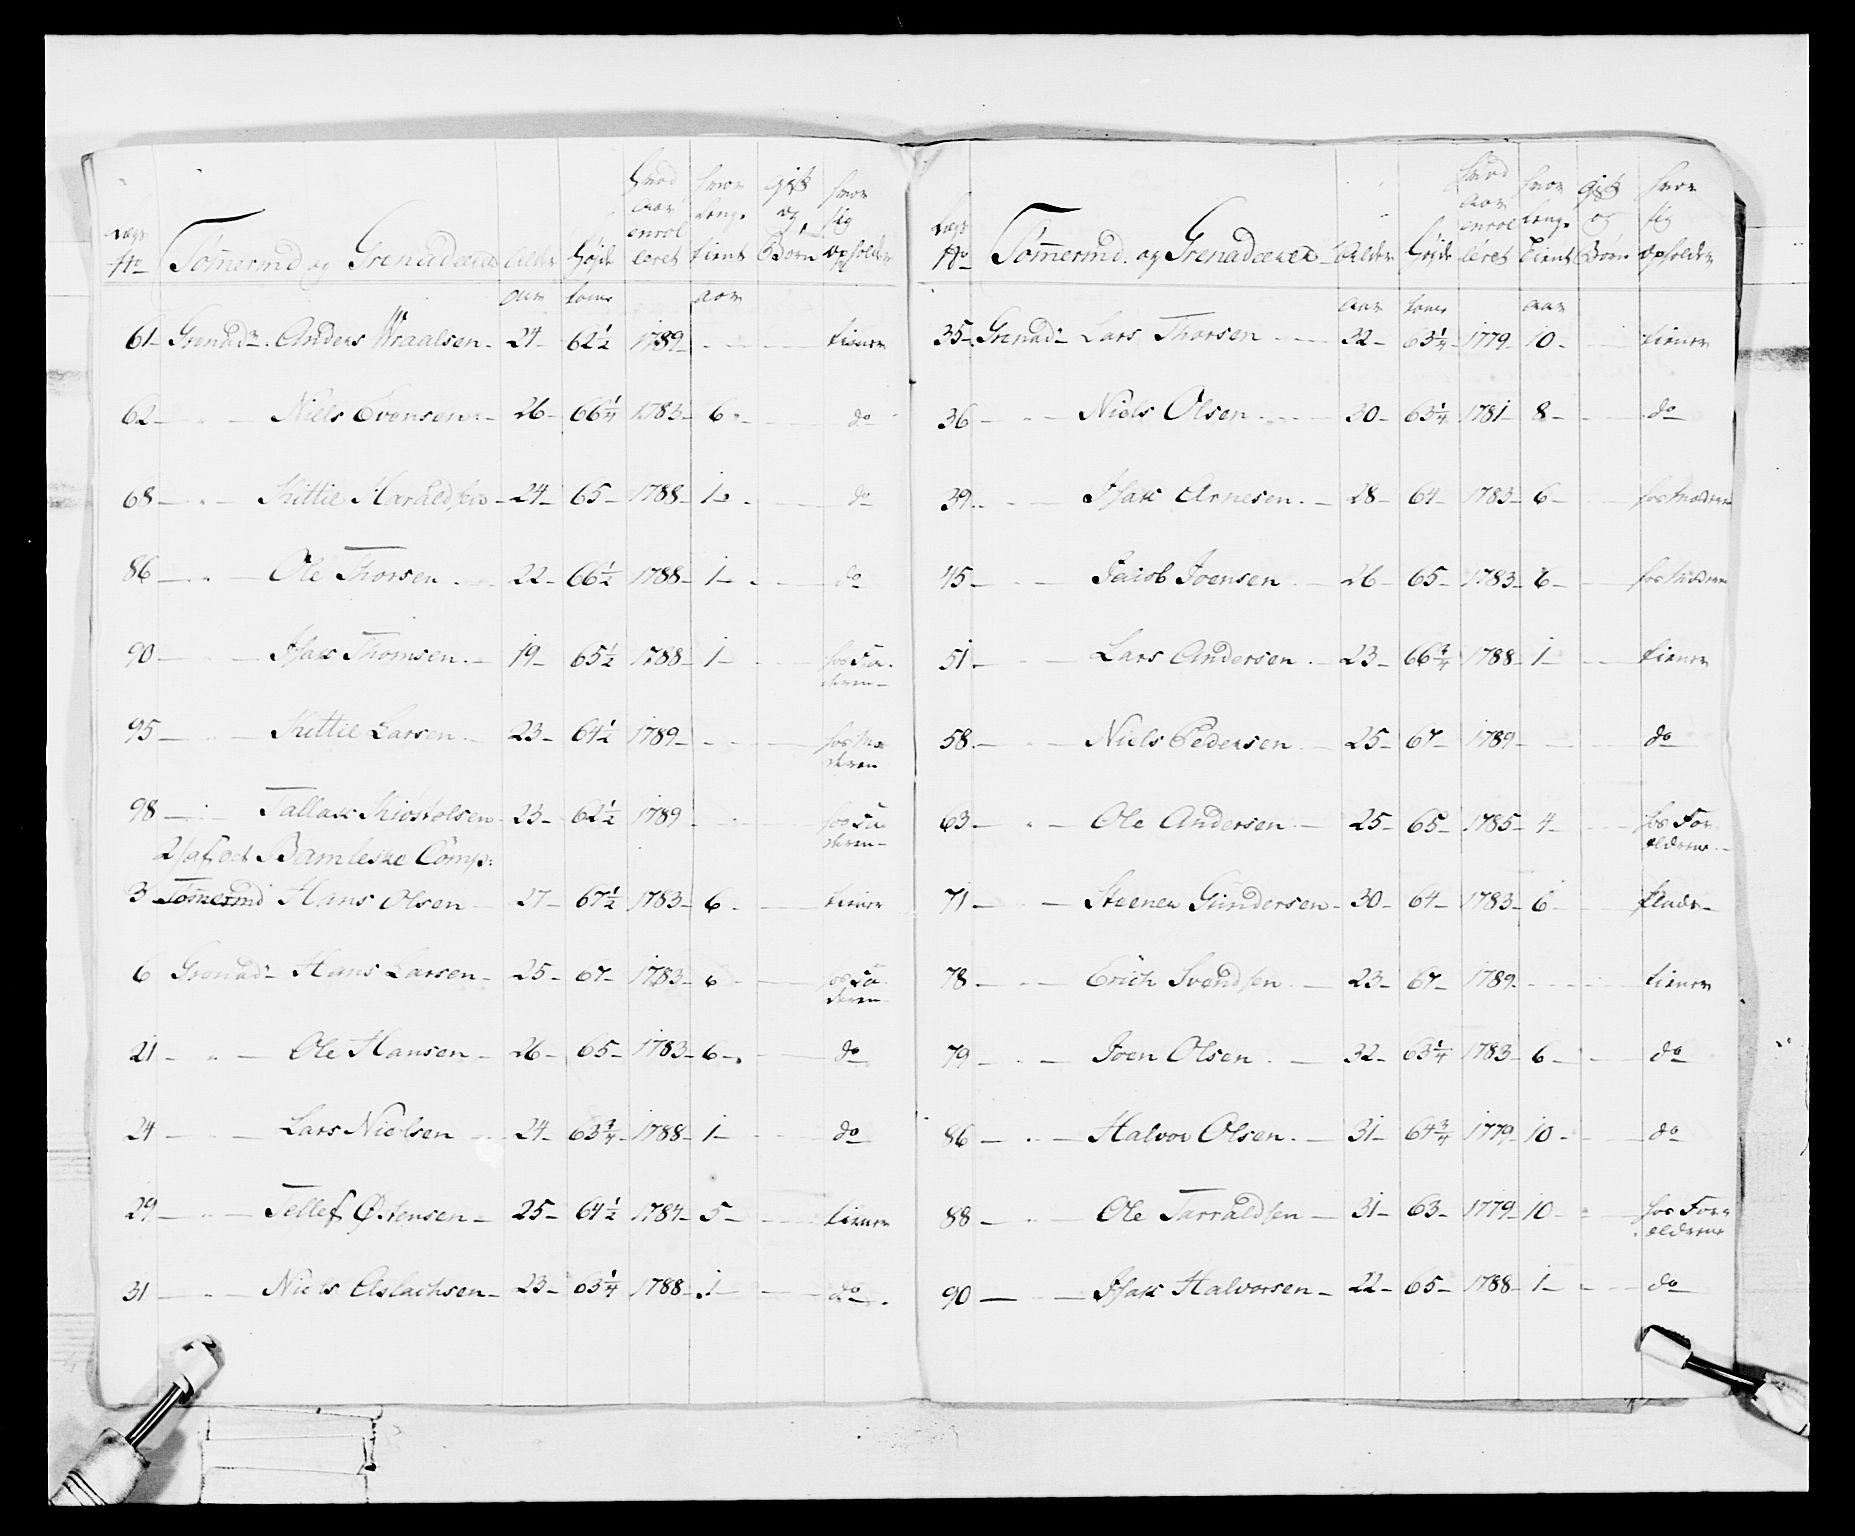 Lægs No Tømermd og Grenaderer Alder Høyde Hvad Aar enrolleret hvor lenge tient Gift og Børn hvor sig opholder
Aar tomr Aar
61 Grenadr. Anders Wraalsen 24 62½ 1789 tiener
62 Niels Evensen 26 66¼ 1783 6 do
68 Kittil Haraldsen 24 65 1788 1 do
86 Ole Thorsen 22 66½ 1788 1 do
90 Isak Thomsen 19 65½ 1788 1 hos Faderen
95 Kittil Larsen 23 64½ 1789 hos Moderen
98 Tallak Kiøstolsen 23 62½ 1789 hos Faderen
2/ af Bamleske Comp:
3 Tømermd Hans Olsen 27 67½ 1783 6 tiener
6 Grenadr Hans Larsen 25 67 1783 6 hos Faderen
21 Ole Hansen 26 65 1783 6 do
24 Lars Nielsen 24 63¾ 1788 1 do
29 Tellef Østensen 25 64½ 1784 5 tiener
31 Niels Aslachsen 23 63¼ 1788 1 do
Lægs No Tømermd. og Grenaderer Alder Høyde Hvad Aar enrolleret hvor lenge Tient Gift og Børn hvor sig opholder
Aar tomr Aar
35 Grenadr Lars Thorsen 32 63¼ 1779 10 tiener
36 Niels Olsen 30 63¼ 1781 8 do
39 Isak Arnesen 28 64 1783 6 hos Moderen
45 Jacob Joensen 26 65 1783 6 hos Moderen
51 Lars Andersen 23 66¾ 1788 1 tiener
58 Niels Pedersen 25 67 1789 do
63 Ole Andersen 25 65 1785 4 hos Forældrene
71 Steener Gundersen 30 64 1783 6
78 Erich Svendsen 23 67 1789 tiener
79 Joen Olsen 32 63¼ 1783 6 do
86 Halvor Olsen 31 64¾ 1779 10 do
88 Ole Tarraldsen 31 63 1779 10 hos Forældrene
90 Isak Halvorsen 22 65 1788 1 do